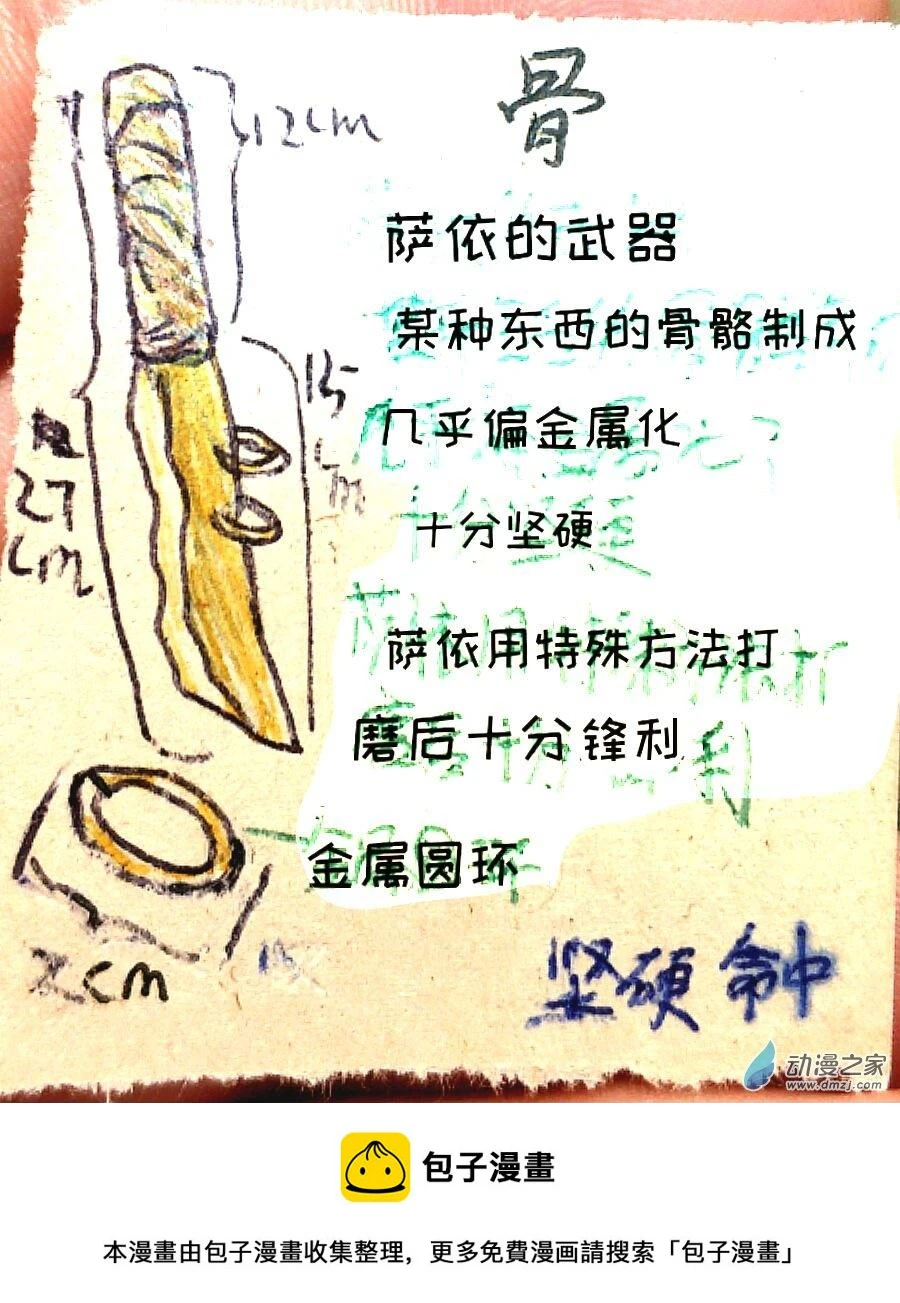 骨
12cm
萨依的武器
某种东西的骨骼制成
15
cm
几乎偏金属化
27
cm
十分坚硬
萨依用特殊方法打
磨后十分锋利
金属圆环
2cm
坚硬 命中
动漫之家
www.dmzj.com
包子漫畫
本漫畫由包子漫畫收集整理，更多免費漫画請搜索「包子漫畫」